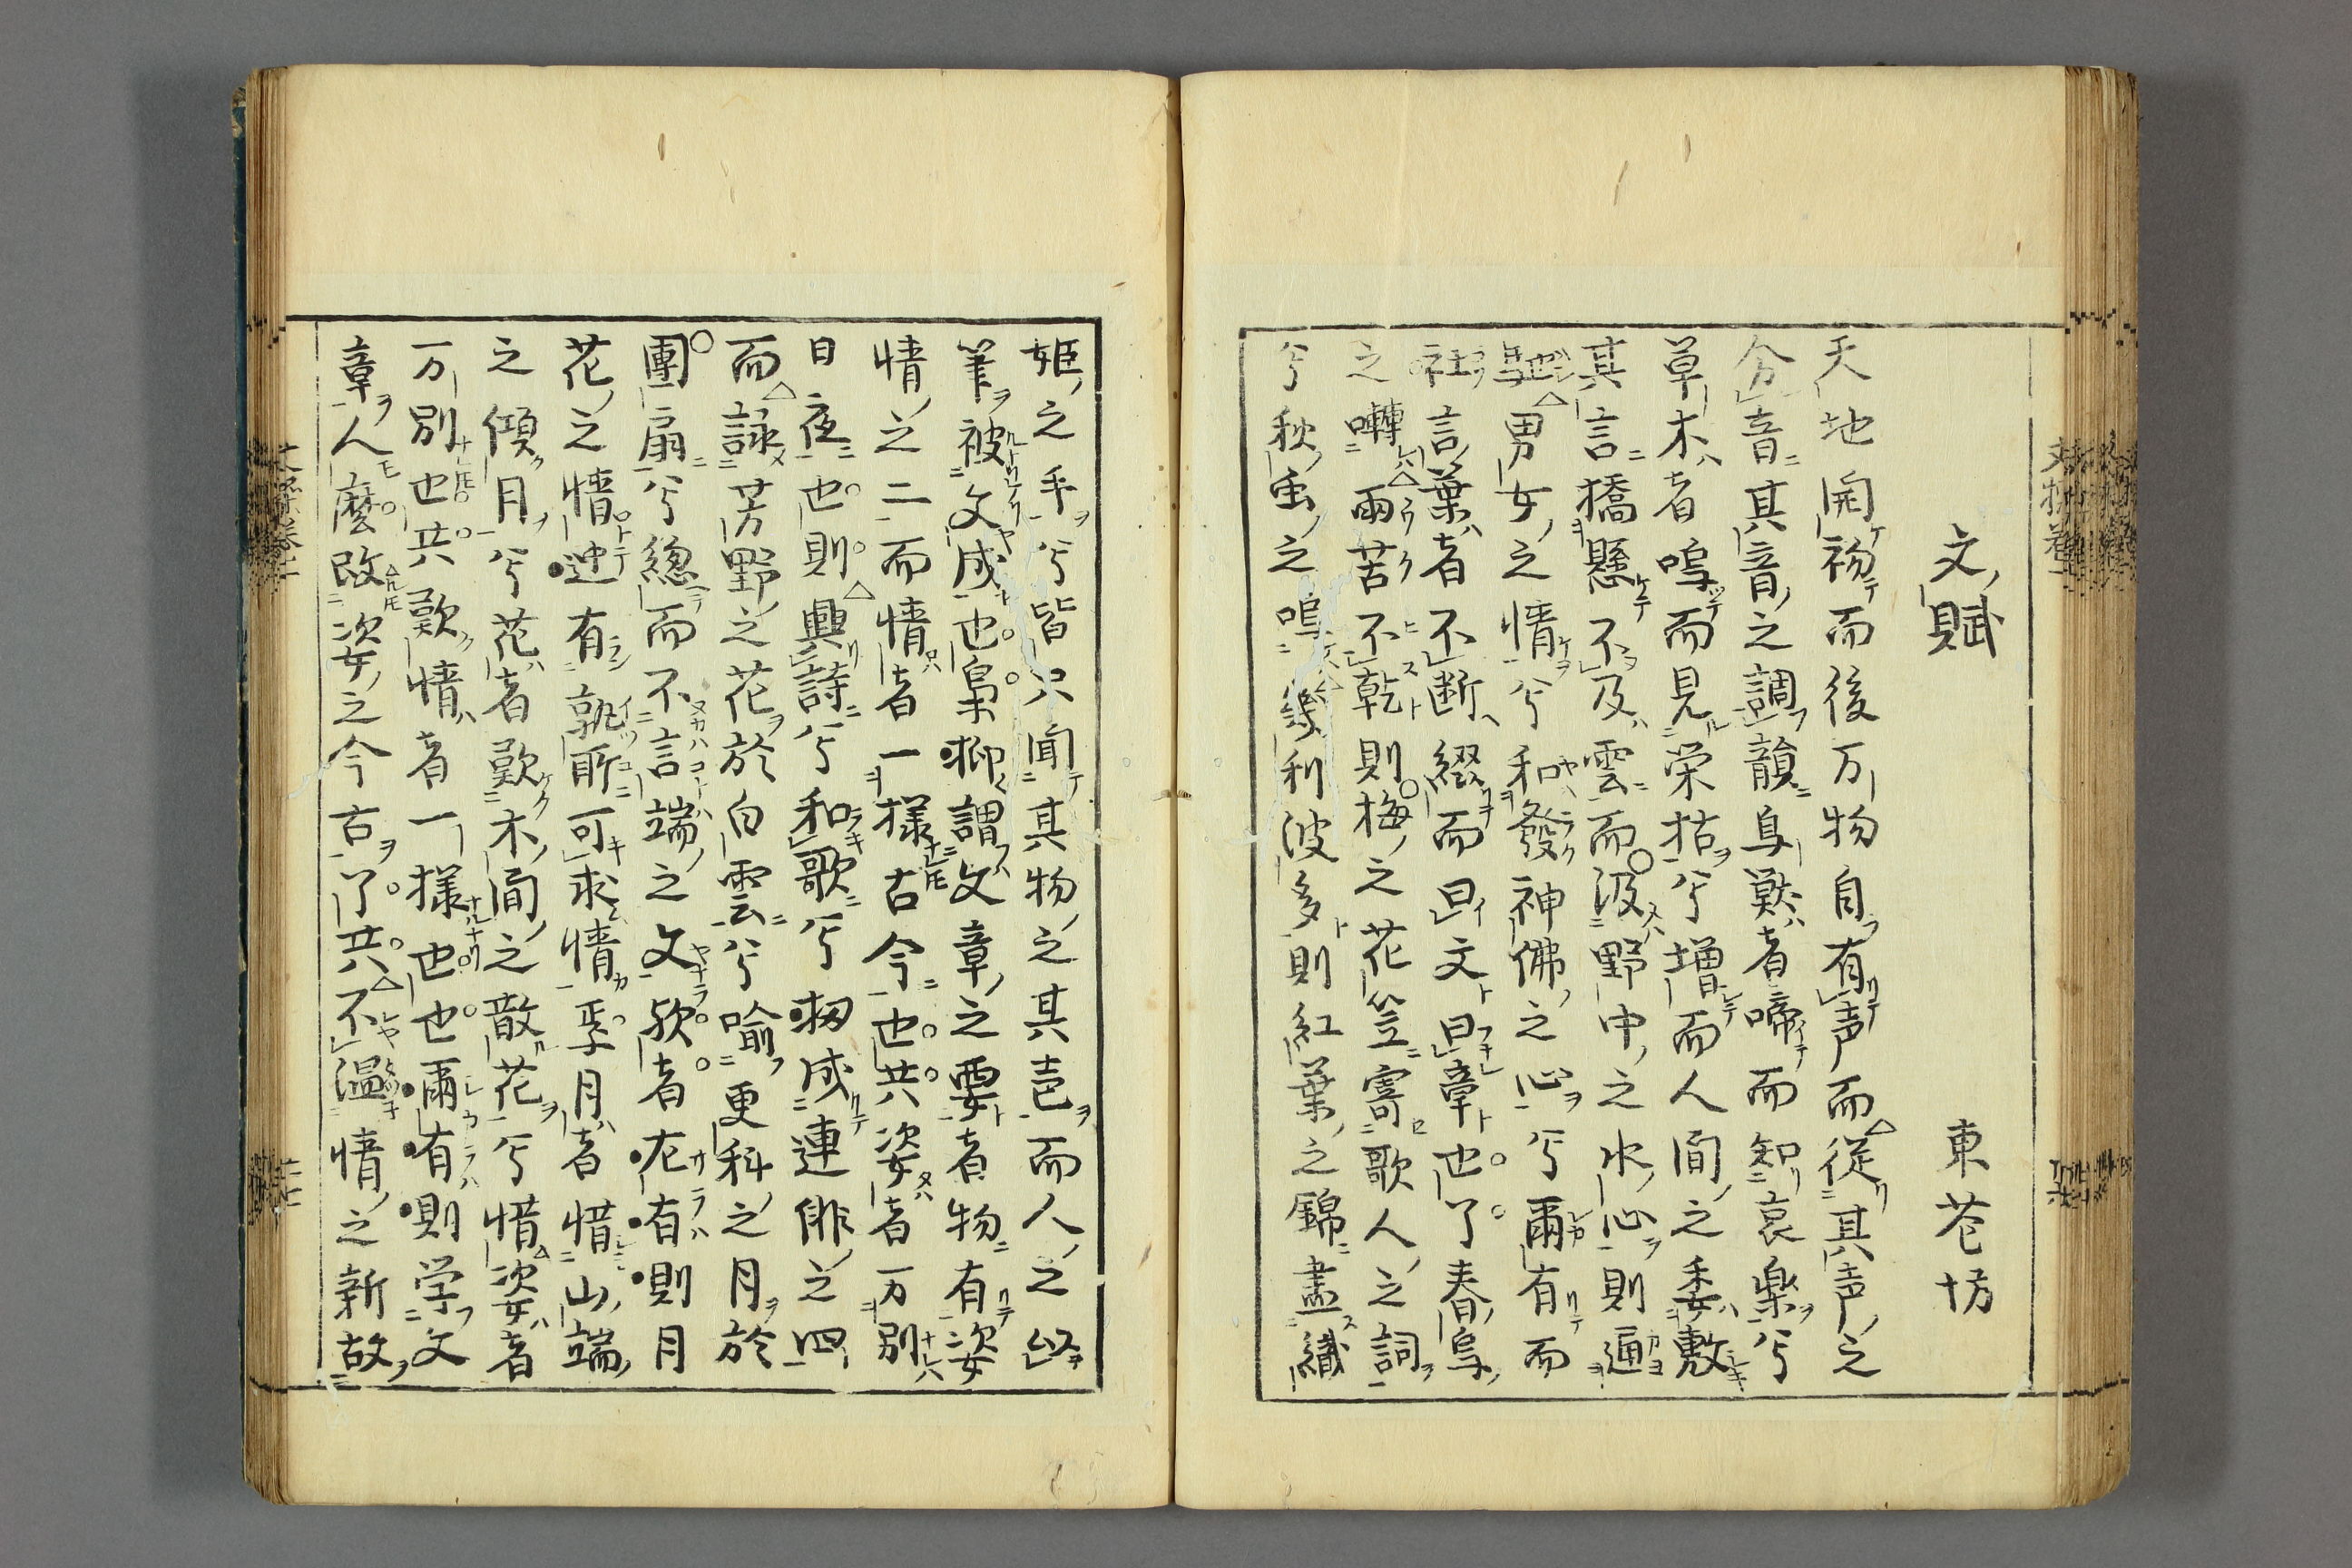 文賦
東花坊
天地開初而後万物自有声而從其声之
分音其音之調韻鳥獣者啼而知哀楽兮
草木者鳴而見栄枯兮増而人間之委敷
其言擣懸不及雲而汲野中之水心則通
馳男女之情兮和發神佛之心兮爾有而
社言葉者不断綴而曰文曰章也了春鳥
之囀雨苦不乾則梅之花笠寄歌人之詞
兮秋虫之鳴幾利波多則紅葉之錦盡織
姫之手兮皆只聞其物之其壱而人之
筆被文成也梟抑謂文章之要者物有姿
情之二而情者一様古今也共姿者万別
日夜也則興詩兮和歌兮扨成連俳之四
而詠芳野之花於白雲兮喩更科之月於
團扇兮総而不言端之文欤者左有則月
花之情迚有孰所可求情乎月者惜山端
之傾月兮花者歎木間之散花兮惜姿者
万別也共歎情者一様也也爾有則学文
章人麼改姿之今古了共不温情之新故